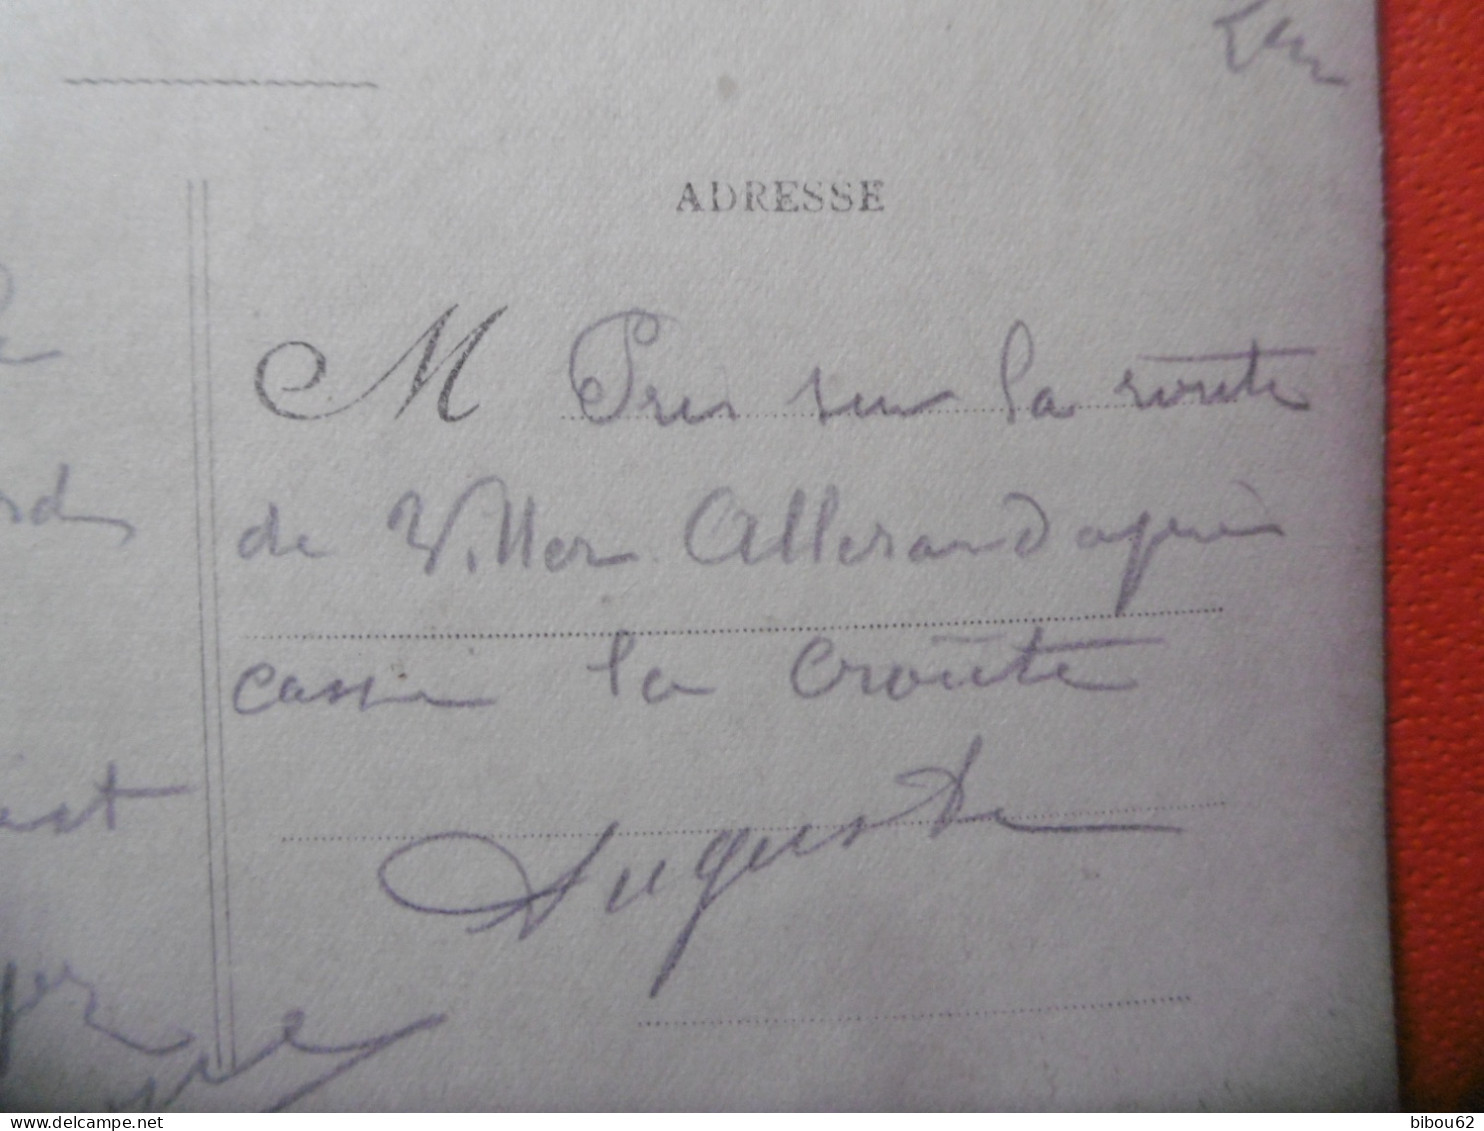 ADRESSE
M Pris sur la route
de Viller Allerand après
casser la croûte
Auguste
est
bibou62